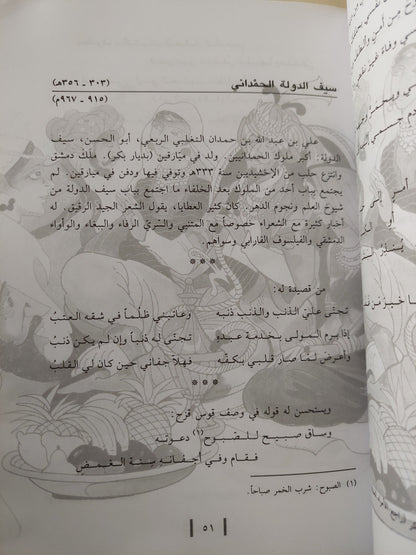 سيف الدولة الحمْداني (٣٠٣ ـ ٣٥٦هـ)
(٩١٥ ـ ٩٦٧م)
علي بن عبد الله بن حمدان التغلبي الربعي، أبو الحسن، سيف
الدولة: أكبر ملوك الحمدانيين. ولد في ميّارفين (بديار بكر). ملك دمشق
وانتزع حلب من الأخشيديين سنة ٣٣٣هـ وتوفي فيها ودفن في ميارفين. لم
يجتمع بباب أحد من الملوك بعد الخلفاء ما اجتمع بباب سيف الدولة من
شيوخ العلم ونجوم الدهر. كان كثير العطايا، يقول الشعر الجيد الرقيق. له
أخبار كثيرة مع الشعراء خصوصاً مع المتنبي والسّريّ الرفاء والببغاء والوأواء
الدمشقي والفيلسوف الفارابي وسواهم.
***
من قصيدة له:
تجنّى عليّ الذنب والذنب ذنبه وعاتبني ظلماً في شقه العتبُ
إذا برم المولى بخدمة عبدهِ تجنّى له ذنباً وإن لم يكن ذنبُ
وأعرض لمّا صار قلبي بكفّه فهلاّ جفاني حين كان لي القلبُ
***
ويستحسن له قوله في وصف قوس قزح:
وساق صبيح للصّبوح (١) دعوته
فقام وفي أجفانه سِنة الغمضِ
(١) الصبوح: شرب الخمر صباحاً.
٥١